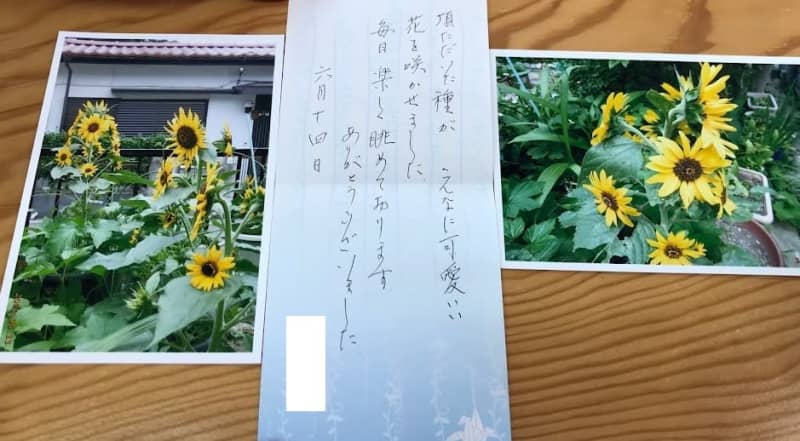 頂ただいた種が こんなに可愛いい
花を咲かせました
毎日楽しく眺めております
ありがとうございました
六月十四日